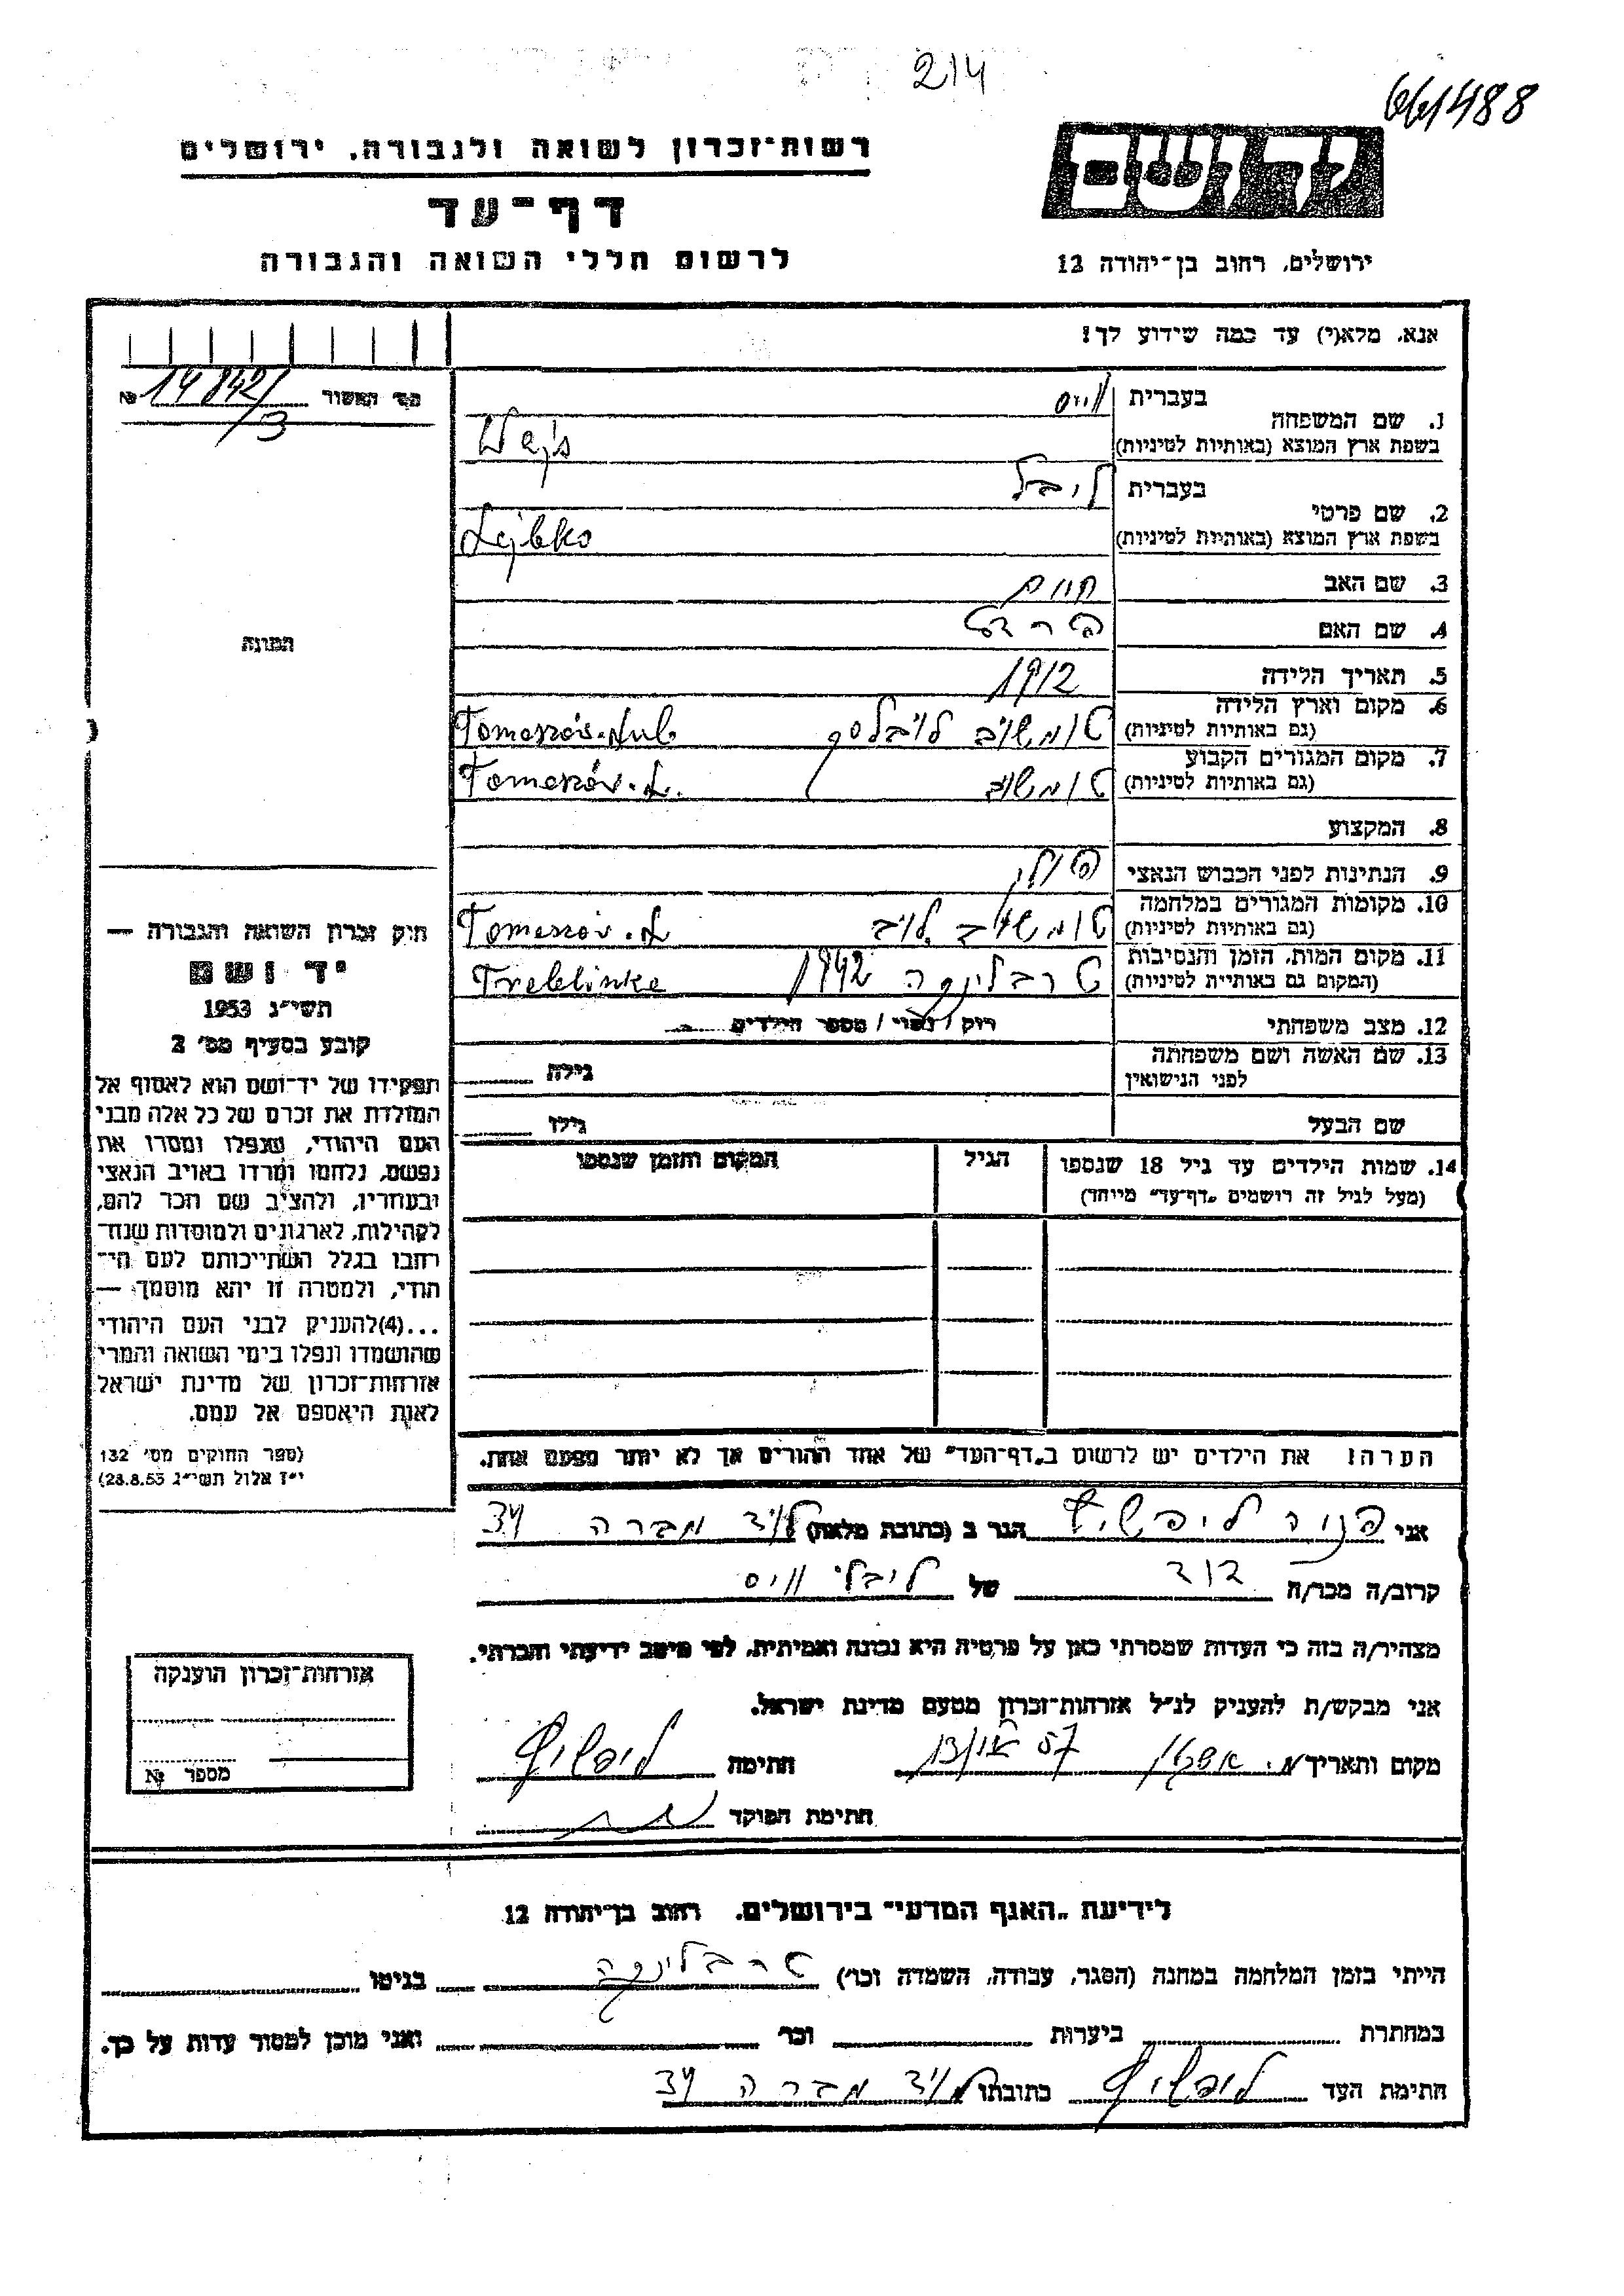 214
661488
רשות־זכרון לשואה ולגבורה, ירושלים
דף־עד
לרשום חללי השואה והגבורה
יד ושם
ירושלים, רחוב בן־יהודה 12
אנא, מלא(י) עד כמה שידוע לך!
מס' האשור № 14842/3
1. שם המשפחה
בעברית ווייס
בשפת ארץ המוצא (באותיות לטיניות) Wajs
2. שם פרטי
בעברית ליבל
בשפת ארץ המוצא (באותיות לטיניות) Lejbko
3. שם האב חיים
4. שם האם
5. תאריך הלידה 1912
6. מקום וארץ הלידה
(גם באותיות לטיניות) טומשוב לובלסקי Tomaszów. Lub.
7. מקום המגורים הקבוע
(גם באותיות לטיניות) טומשוב Tomaszów. L.
8. המקצוע
9. הנתינות לפני הכבוש הנאצי פולני
10. מקומות המגורים במלחמה
(גם באותיות לטיניות) טומשוב לוב Tomaszów. L
11. מקום המות, הזמן והנסיבות
(המקום גם באותיות לטיניות) טרבלינקה 1942 Treblinka
12. מצב משפחתי רוק / נשוי / מספר הילדים
13. שם האשה ושם משפחתה
לפני הנישואין
גילה
שם הבעל גילו
14. שמות הילדים עד גיל 18 שנספו
(מעל לגיל זה רושמים „דף־עד" מייחד)
הגיל
המקום והזמן שנספו
הערה! את הילדים יש לרשום ב„דף־העד" של אחד ההורים אך לא יותר מפעם אחת.
התמונה
חוק זכרון השואה והגבורה —
יד ושם
תשי״ג 1953
קובע בסעיף מס' 2
תפקידו של יד־ושם הוא לאסוף אל
המולדת את זכרם של כל אלה מבני
העם היהודי, שנפלו ומסרו את
נפשם, נלחמו ומרדו באויב הנאצי
ובעוזריו, ולהציב שם וזכר להם,
לקהילות, לארגונים ולמוסדות שנח־
רבו בגלל השתייכותם לעם הי־
הודי, ולמטרה זו יהא מוסמך —
...(4)להעניק לבני העם היהודי
שהושמדו ונפלו בימי השואה והמרי
אזרחות־זכרון של מדינת ישראל
לאות היאספם אל עמם.
(ספר החוקים מס' 132
י״ז אלול תשי״ג 28.8.53)
אני פניה ליפשיץ הגר ב (כתובת מלאה) מברה 34
קרוב/ה מכר/ה דוד של ליבל ווייס
מצהיר/ה בזה כי העדות שמסרתי כאן על פרטיה היא נכונה ואמיתית, לפי מיטב ידיעתי והכרתי.
אני מבקש/ת להעניק לנ״ל אזרחות־זכרון מטעם מדינת ישראל.
מקום ותאריך 57 חתימה ליפשיץ
חתימת הפוקד
אזרחות־זכרון הוענקה
מספר №
לידיעת „האגף המדעי" בירושלים, רחוב בן־יהודה 12
הייתי בזמן המלחמה במחנה (הסגר, עבודה, השמדה וכו') טרבלינקה בגיטו
במחתרת ביערות וכו' ואני מוכן למסור עדות על כך.
חתימת העד ליפשיץ כתובתו מברה 34